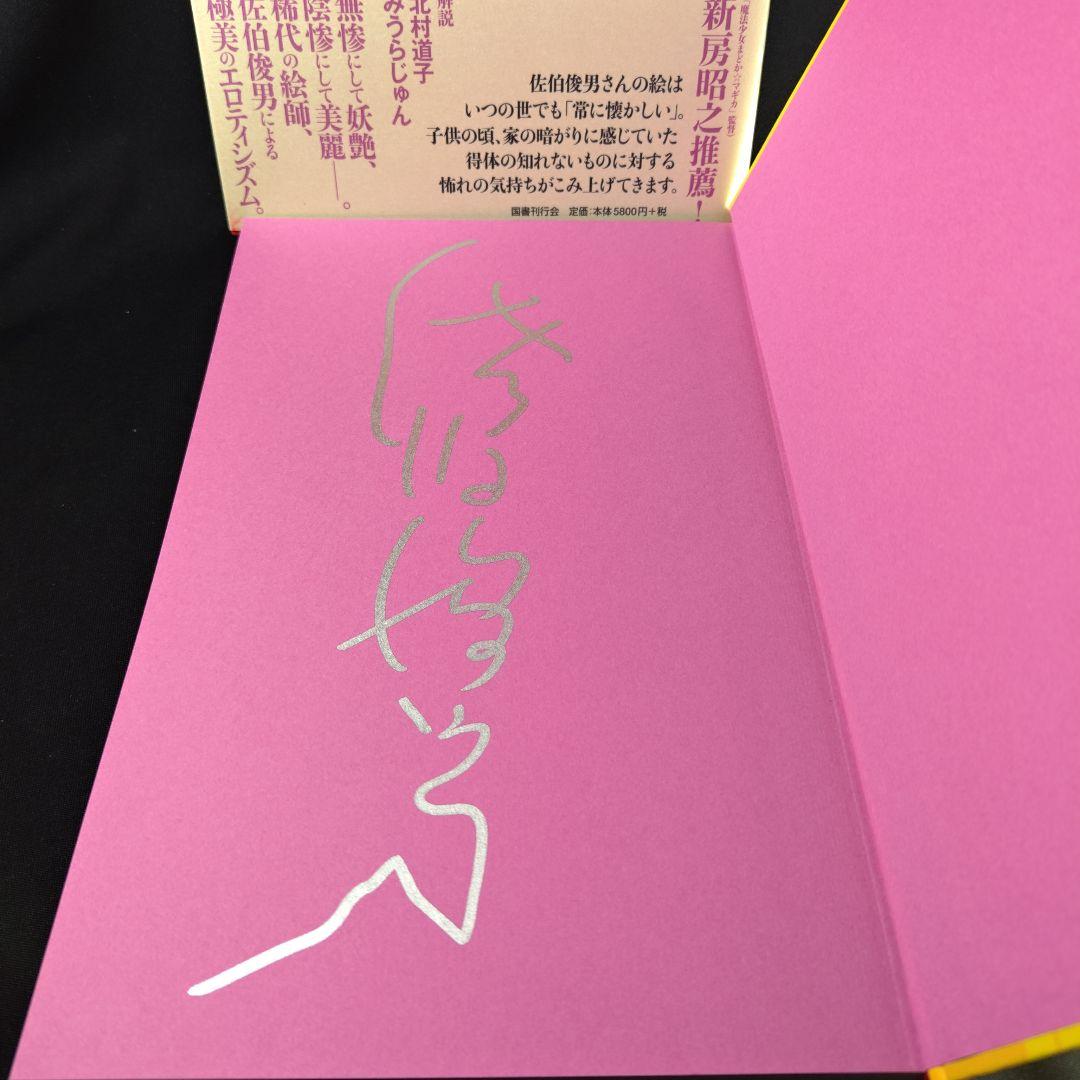 「魔法少女まどか☆マギカ」監督)
新房昭之推薦!
佐伯俊男さんの絵は
いつの世でも「常に懐かしい」。
子供の頃、家の暗がりに感じていた
得体の知れないものに対する
怖れの気持ちがこみ上げてきます。
国書刊行会 定価:本体5800円+税
解説
北村道子
みうらじゅん
無惨にして妖艶、
陰惨にして美麗――。
稀代の絵師、
佐伯俊男による
極美のエロティシズム。
佐伯俊男